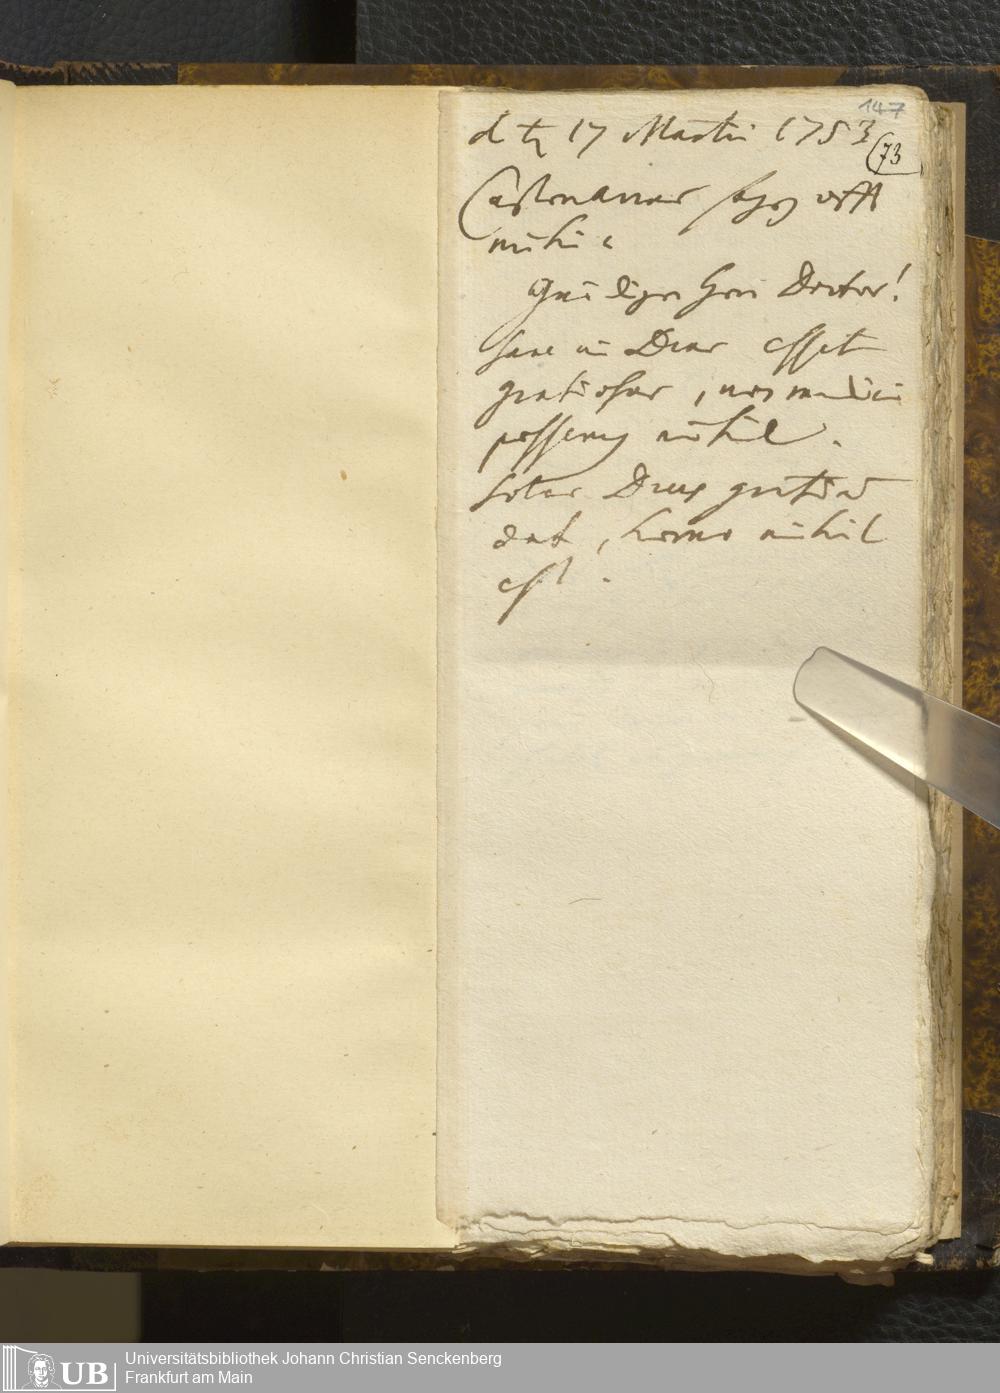 147
d ♄ 17 Martii 1753
73
Castenauer sagt offt
mihi:
Gnädiger Herr Doctor!
sane ni Deus esset
gratiosus, nos medici
possemus nihil.
solus Deus gratiam
dat, homo nihil
est.
Universitätsbibliothek Johann Christian Senckenberg
Frankfurt am Main
UB